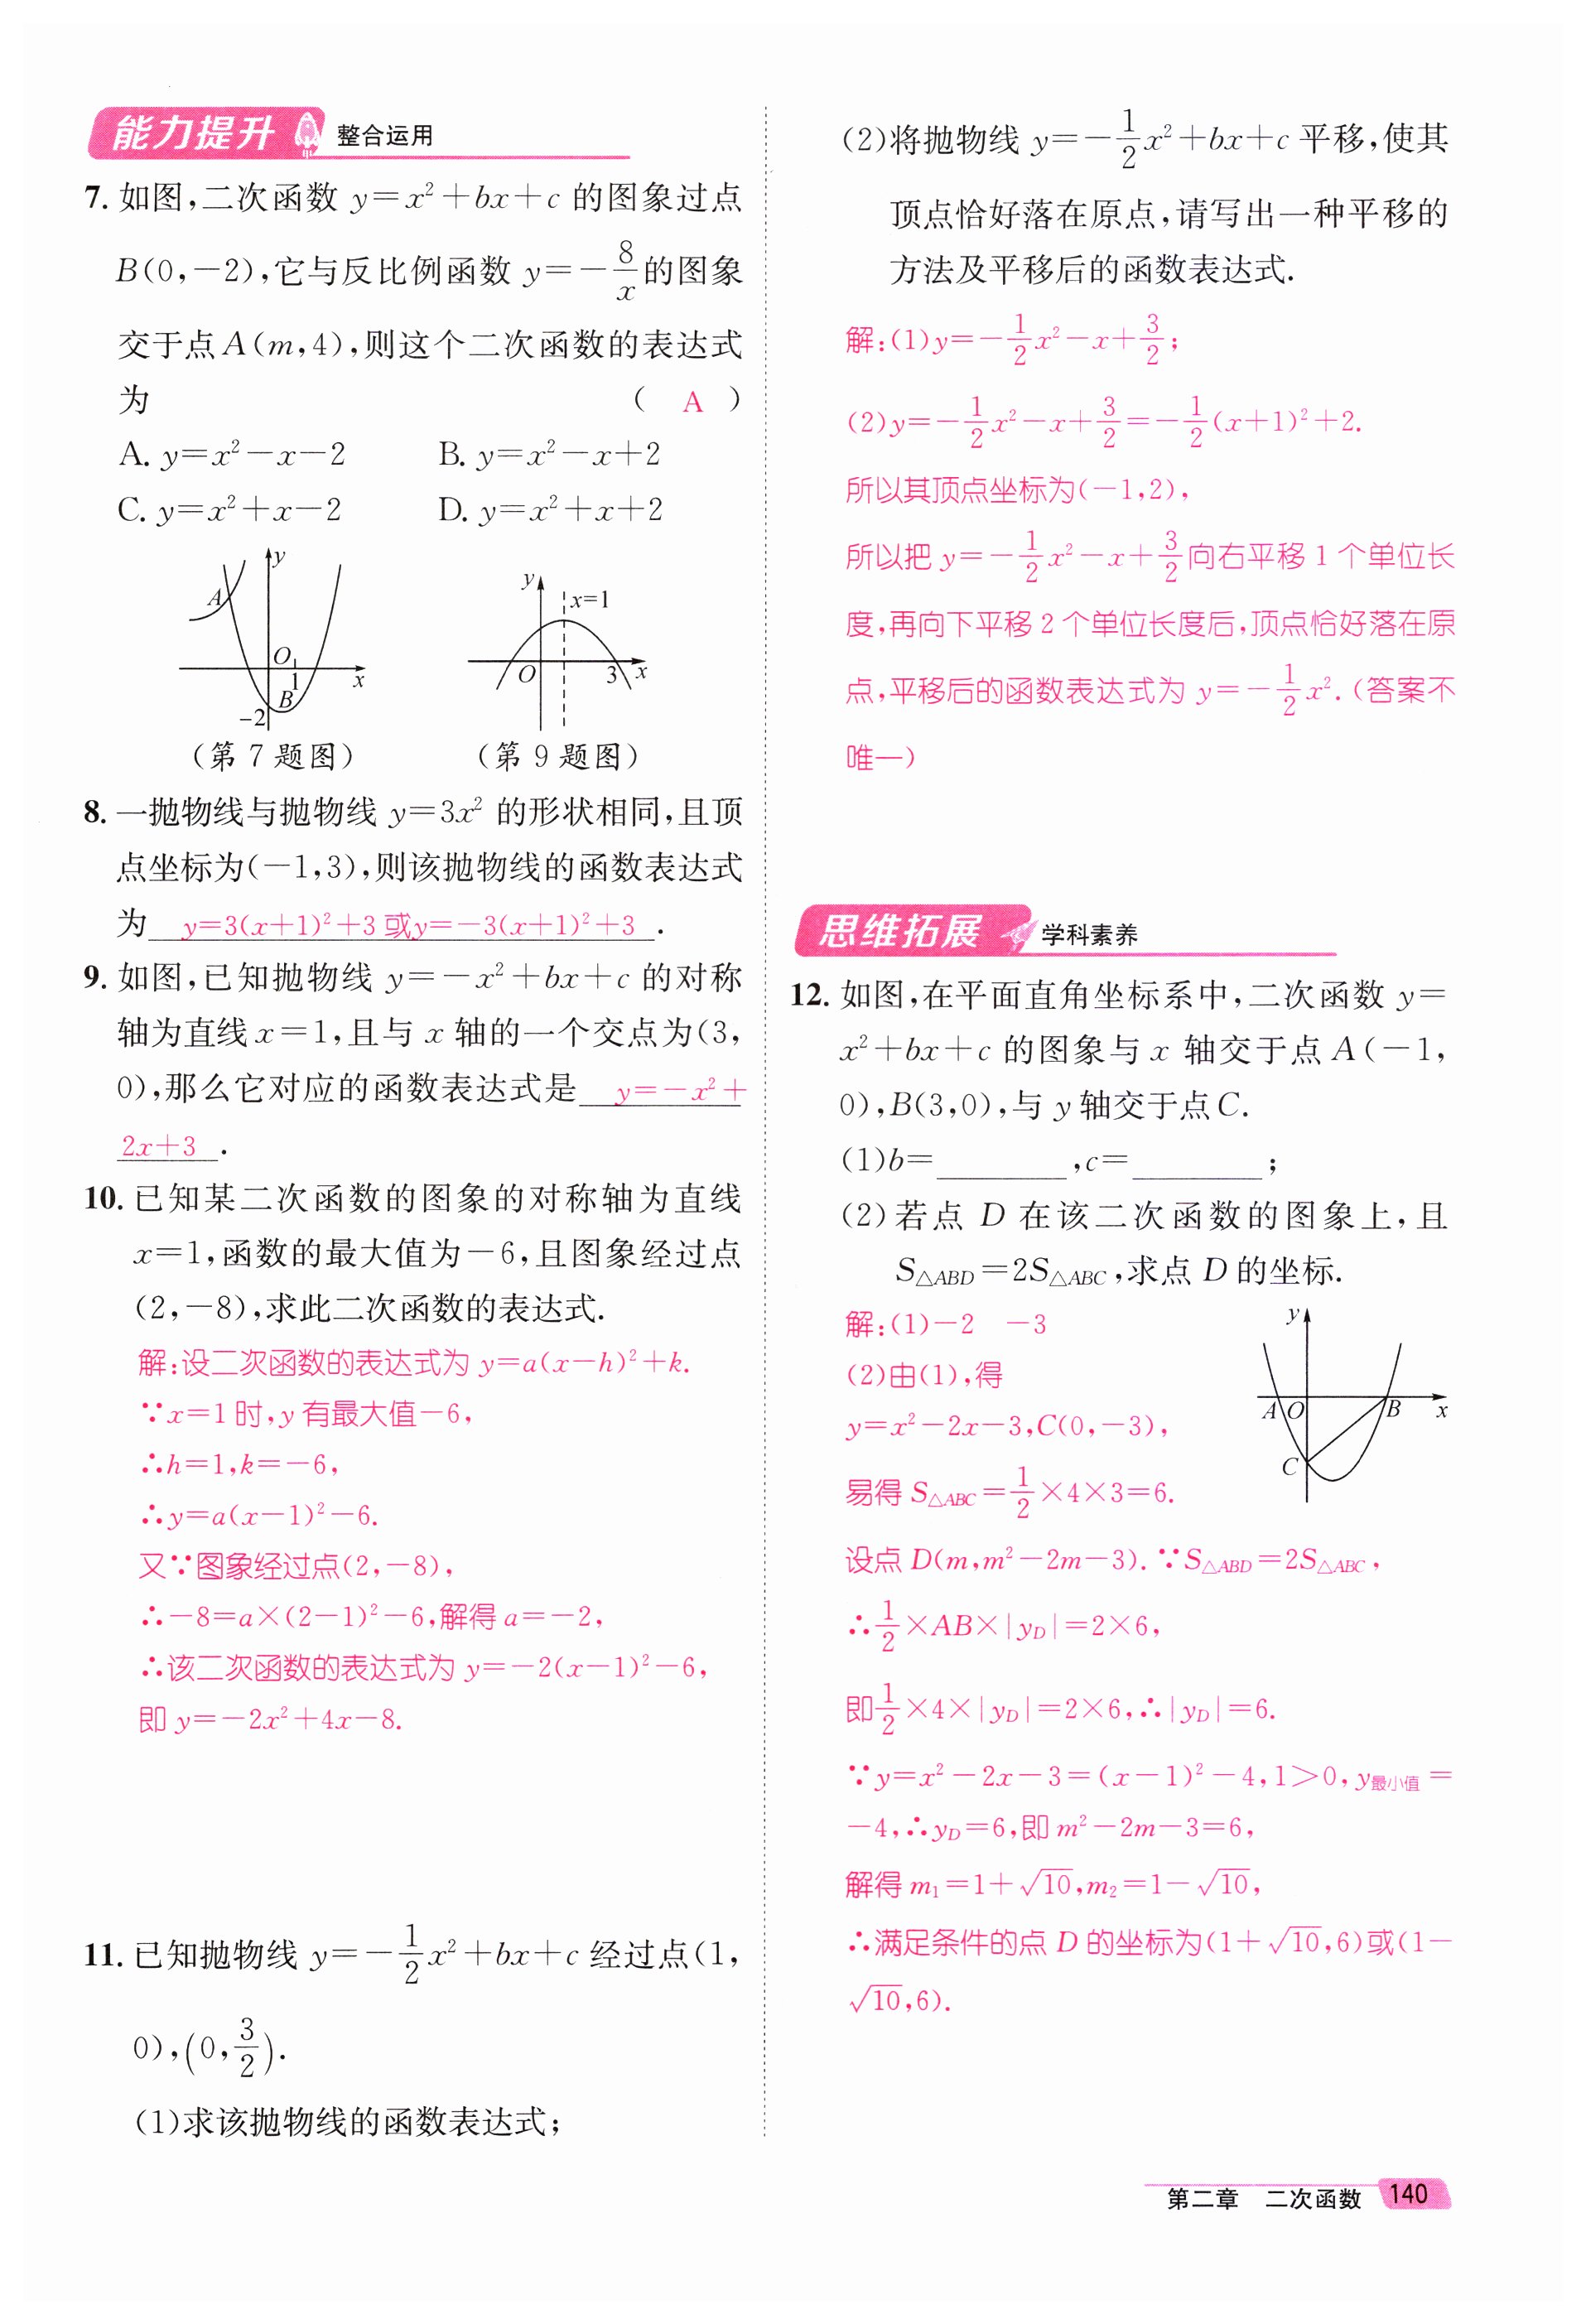 能力提升 整合运用
7. 如图,二次函数 y=x²+bx+c 的图象过点
B(0,-2),它与反比例函数 y=-8/x 的图象
交于点 A(m,4),则这个二次函数的表达式
为 ( A )
A. y=x²-x-2 B. y=x²-x+2
C. y=x²+x-2 D. y=x²+x+2
y
A
O
1
x
B
-2
(第 7 题图)
y
x=1
O
3
x
(第 9 题图)
8. 一抛物线与抛物线 y=3x² 的形状相同,且顶
点坐标为(-1,3),则该抛物线的函数表达式
为 y=3(x+1)²+3 或y=-3(x+1)²+3 .
9. 如图,已知抛物线 y=-x²+bx+c 的对称
轴为直线 x=1,且与 x 轴的一个交点为(3,
0),那么它对应的函数表达式是 y=-x²+
2x+3 .
10. 已知某二次函数的图象的对称轴为直线
x=1,函数的最大值为-6,且图象经过点
(2,-8),求此二次函数的表达式.
解:设二次函数的表达式为 y=a(x-h)²+k.
∵x=1 时,y 有最大值-6,
∴h=1,k=-6,
∴y=a(x-1)²-6.
又∵图象经过点(2,-8),
∴-8=a×(2-1)²-6,解得 a=-2,
∴该二次函数的表达式为 y=-2(x-1)²-6,
即 y=-2x²+4x-8.
11. 已知抛物线 y=-1/2x²+bx+c 经过点(1,
0),(0,3/2).
(1)求该抛物线的函数表达式;
(2)将抛物线 y=-1/2x²+bx+c 平移,使其
顶点恰好落在原点,请写出一种平移的
方法及平移后的函数表达式.
解:(1)y=-1/2x²-x+3/2;
(2)y=-1/2x²-x+3/2=-1/2(x+1)²+2.
所以其顶点坐标为(-1,2),
所以把 y=-1/2x²-x+3/2向右平移 1 个单位长
度,再向下平移 2 个单位长度后,顶点恰好落在原
点,平移后的函数表达式为 y=-1/2x².(答案不
唯一)
思维拓展 学科素养
12. 如图,在平面直角坐标系中,二次函数 y=
x²+bx+c 的图象与 x 轴交于点 A(-1,
0),B(3,0),与 y 轴交于点 C.
(1)b=________,c=________;
(2)若点 D 在该二次函数的图象上,且
S△ABD=2S△ABC,求点 D 的坐标.
解:(1)-2 -3
(2)由(1),得
y=x²-2x-3,C(0,-3),
易得 S△ABC=1/2×4×3=6.
y
A
O
B
x
C
设点 D(m,m²-2m-3).∵S△ABD=2S△ABC,
∴1/2×AB×|yD|=2×6,
即1/2×4×|yD|=2×6,∴|yD|=6.
∵y=x²-2x-3=(x-1)²-4,1>0,y最小值=
-4,∴yD=6,即 m²-2m-3=6,
解得 m₁=1+√10,m₂=1-√10,
∴满足条件的点 D 的坐标为(1+√10,6)或(1-
√10,6).
第二章 二次函数 140